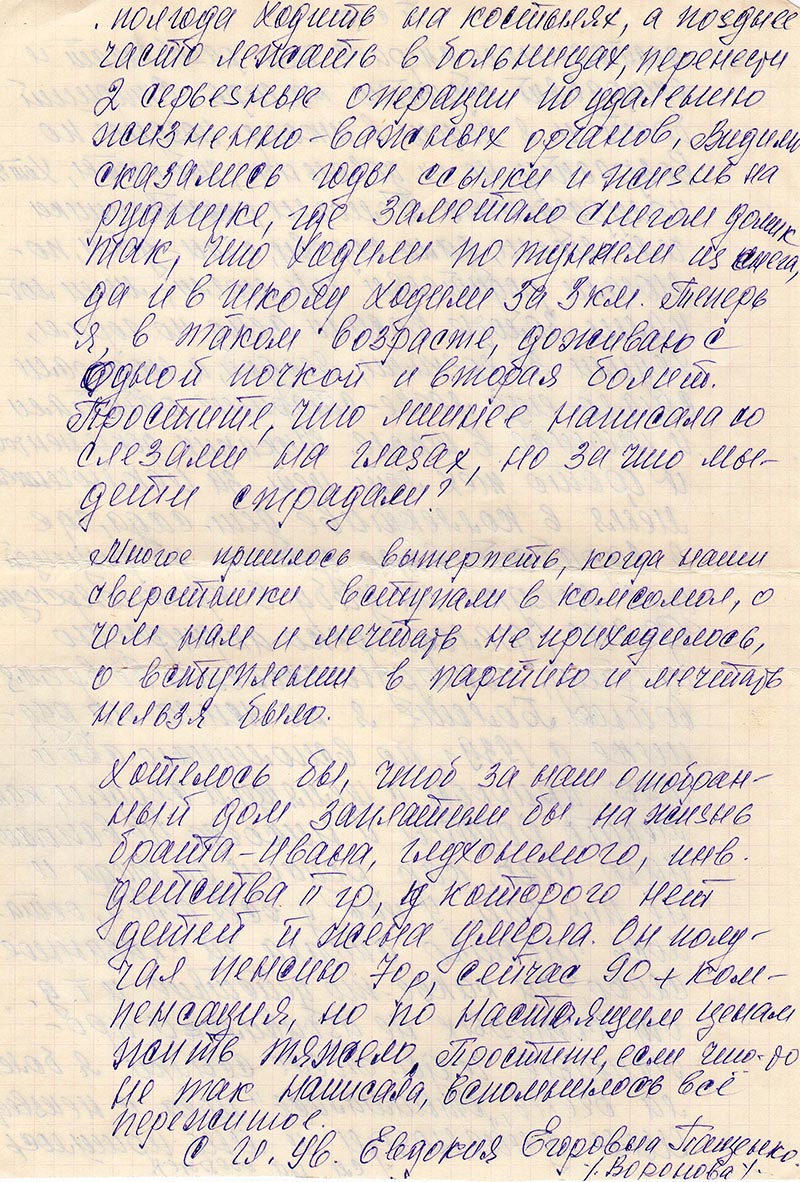 полгода ходить на костылях, а позднее
часто лежать в больницах, перенести
2 серьезные операции по удалению
жизненно-важных органов. Видимо
сказались годы ссылки и жизнь на
руднике, где заметало снегом домик
так, что ходили по тунели из снега,
да и в школу ходили за 3 км. Теперь
я, в таком возрасте, доживаю с
одной почкой и вторая болит.
Простите, что лишнее написала со
слезами на глазах, но за что мы-
дети страдали?
Многое пришлось вытерпеть, когда наши
сверстники вступали в комсомол, о
чем нам и мечтать не приходилось,
о вступлении в партию и мечтать
нельзя было.
Хотелось бы, чтоб за наш отобран-
ный дом заплатили бы на жизнь
брата-Ивана, глухонемого, инв.
детства II гр, у которого нет
детей и жена умерла. Он полу-
чал пенсию 70р, сейчас 90 + ком-
пенсация, но по настоящим ценам
жить тяжело. Простите, если что-то
не так написала, вспомнилось всё
пережитое.
С гл. ув. Евдокия Егоровна Пащенко
/Воронова/.